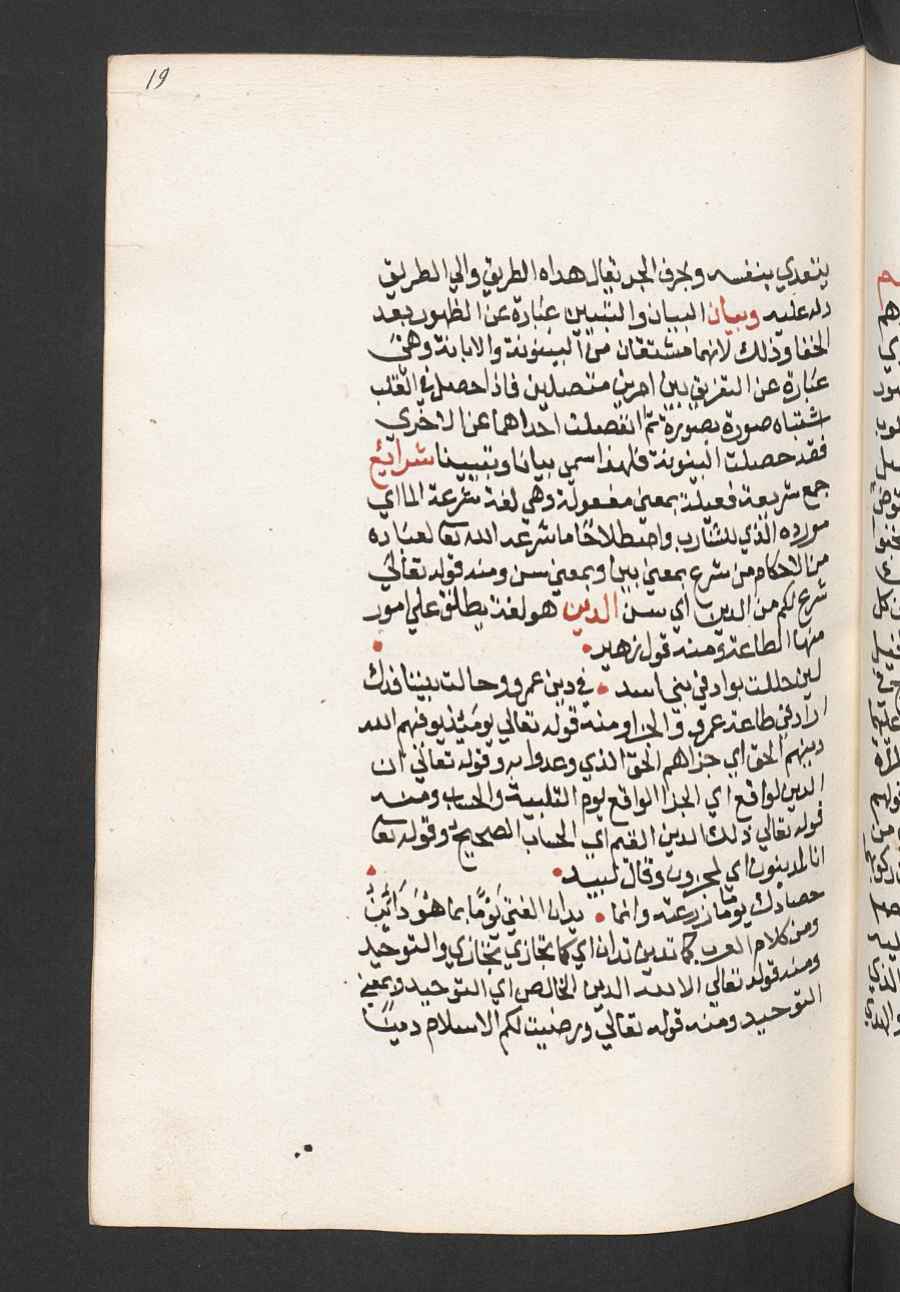 19
يتعدي بنفسه وبحرف الجر يقال هداه الطريق والي الطريق
دله عليه وبيان البيان والتبيين عبارة عن الظهور بعد
الخفا وذلك لانهما مشتقان من البينونة والابانة وهي
عبارة عن التفريق بين امرين متصلين فاذا حصل في القلب
اشتباه صورة بصورة ثم انفصلت احداهما عن الاخري
فقد حصلت البينونة فلهذا سمي بيانا وتبيينا شرايع
جمع شريعة فعيلة بمعني مفعولة وهي لغة شرعة الما اي
مورده الذي للشارب واصطلاحا ما شرعه الله تعا لعباده
من الاحكام من شرع بمعني بين وبمعني سن ومنه قوله تعالي
شرع لكم من الدين اي سن الدين هو لغة يطلق علي امور
منها الطاعة ومنه قول زهير
لين حللت بواد في بني اسد في دين عمرو وحالت بيننا فدك
اراد في طاعة عمرو والجزا ومنه قوله تعالي يوميذ يوفيهم الله
دينهم الحق اي جزاهم الحق الذي وعدوا به وقوله تعالي ان
الدين لواقع اي الجزا الواقع يوم والحساب ومنه
قوله تعالي ذلك الدين القيم اي الحساب الصحيح وقوله تعا
انا لمدينون اي لمجزون وقال لبيد
حصادك يوما ما زرعته وانما يدان الفتي يوما بما هو داين
ومن كلام العرب كما تدين تدان اي كما تجازي تجازي والتوحيد
ومنه قوله تعالي الا لله الدين الخالص اي التوحيد وبمعني
التوحيد ومنه قوله تعالي ورضيت لكم الاسلام دينا